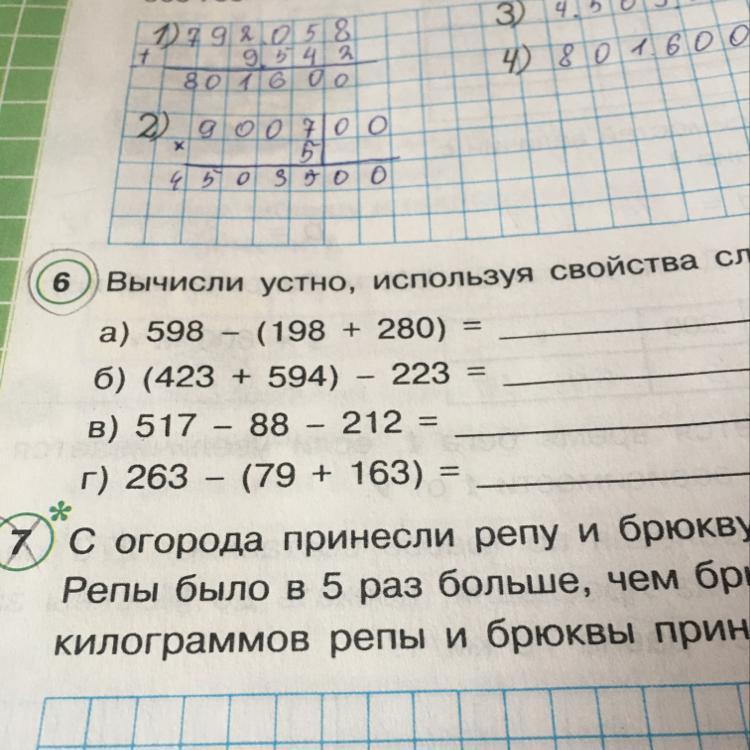 1) 792058
+ 9542
801600
3) 4.50
4) 801.600
2) 900700
× 5
4503500
6 Вычисли устно, используя свойства
а) 598 – (198 + 280) =
б) (423 + 594) – 223 =
в) 517 – 88 – 212 =
г) 263 – (79 + 163) =
7* С огорода принесли репу и брюкву
Репы было в 5 раз больше, чем
килограммов репы и брюквы